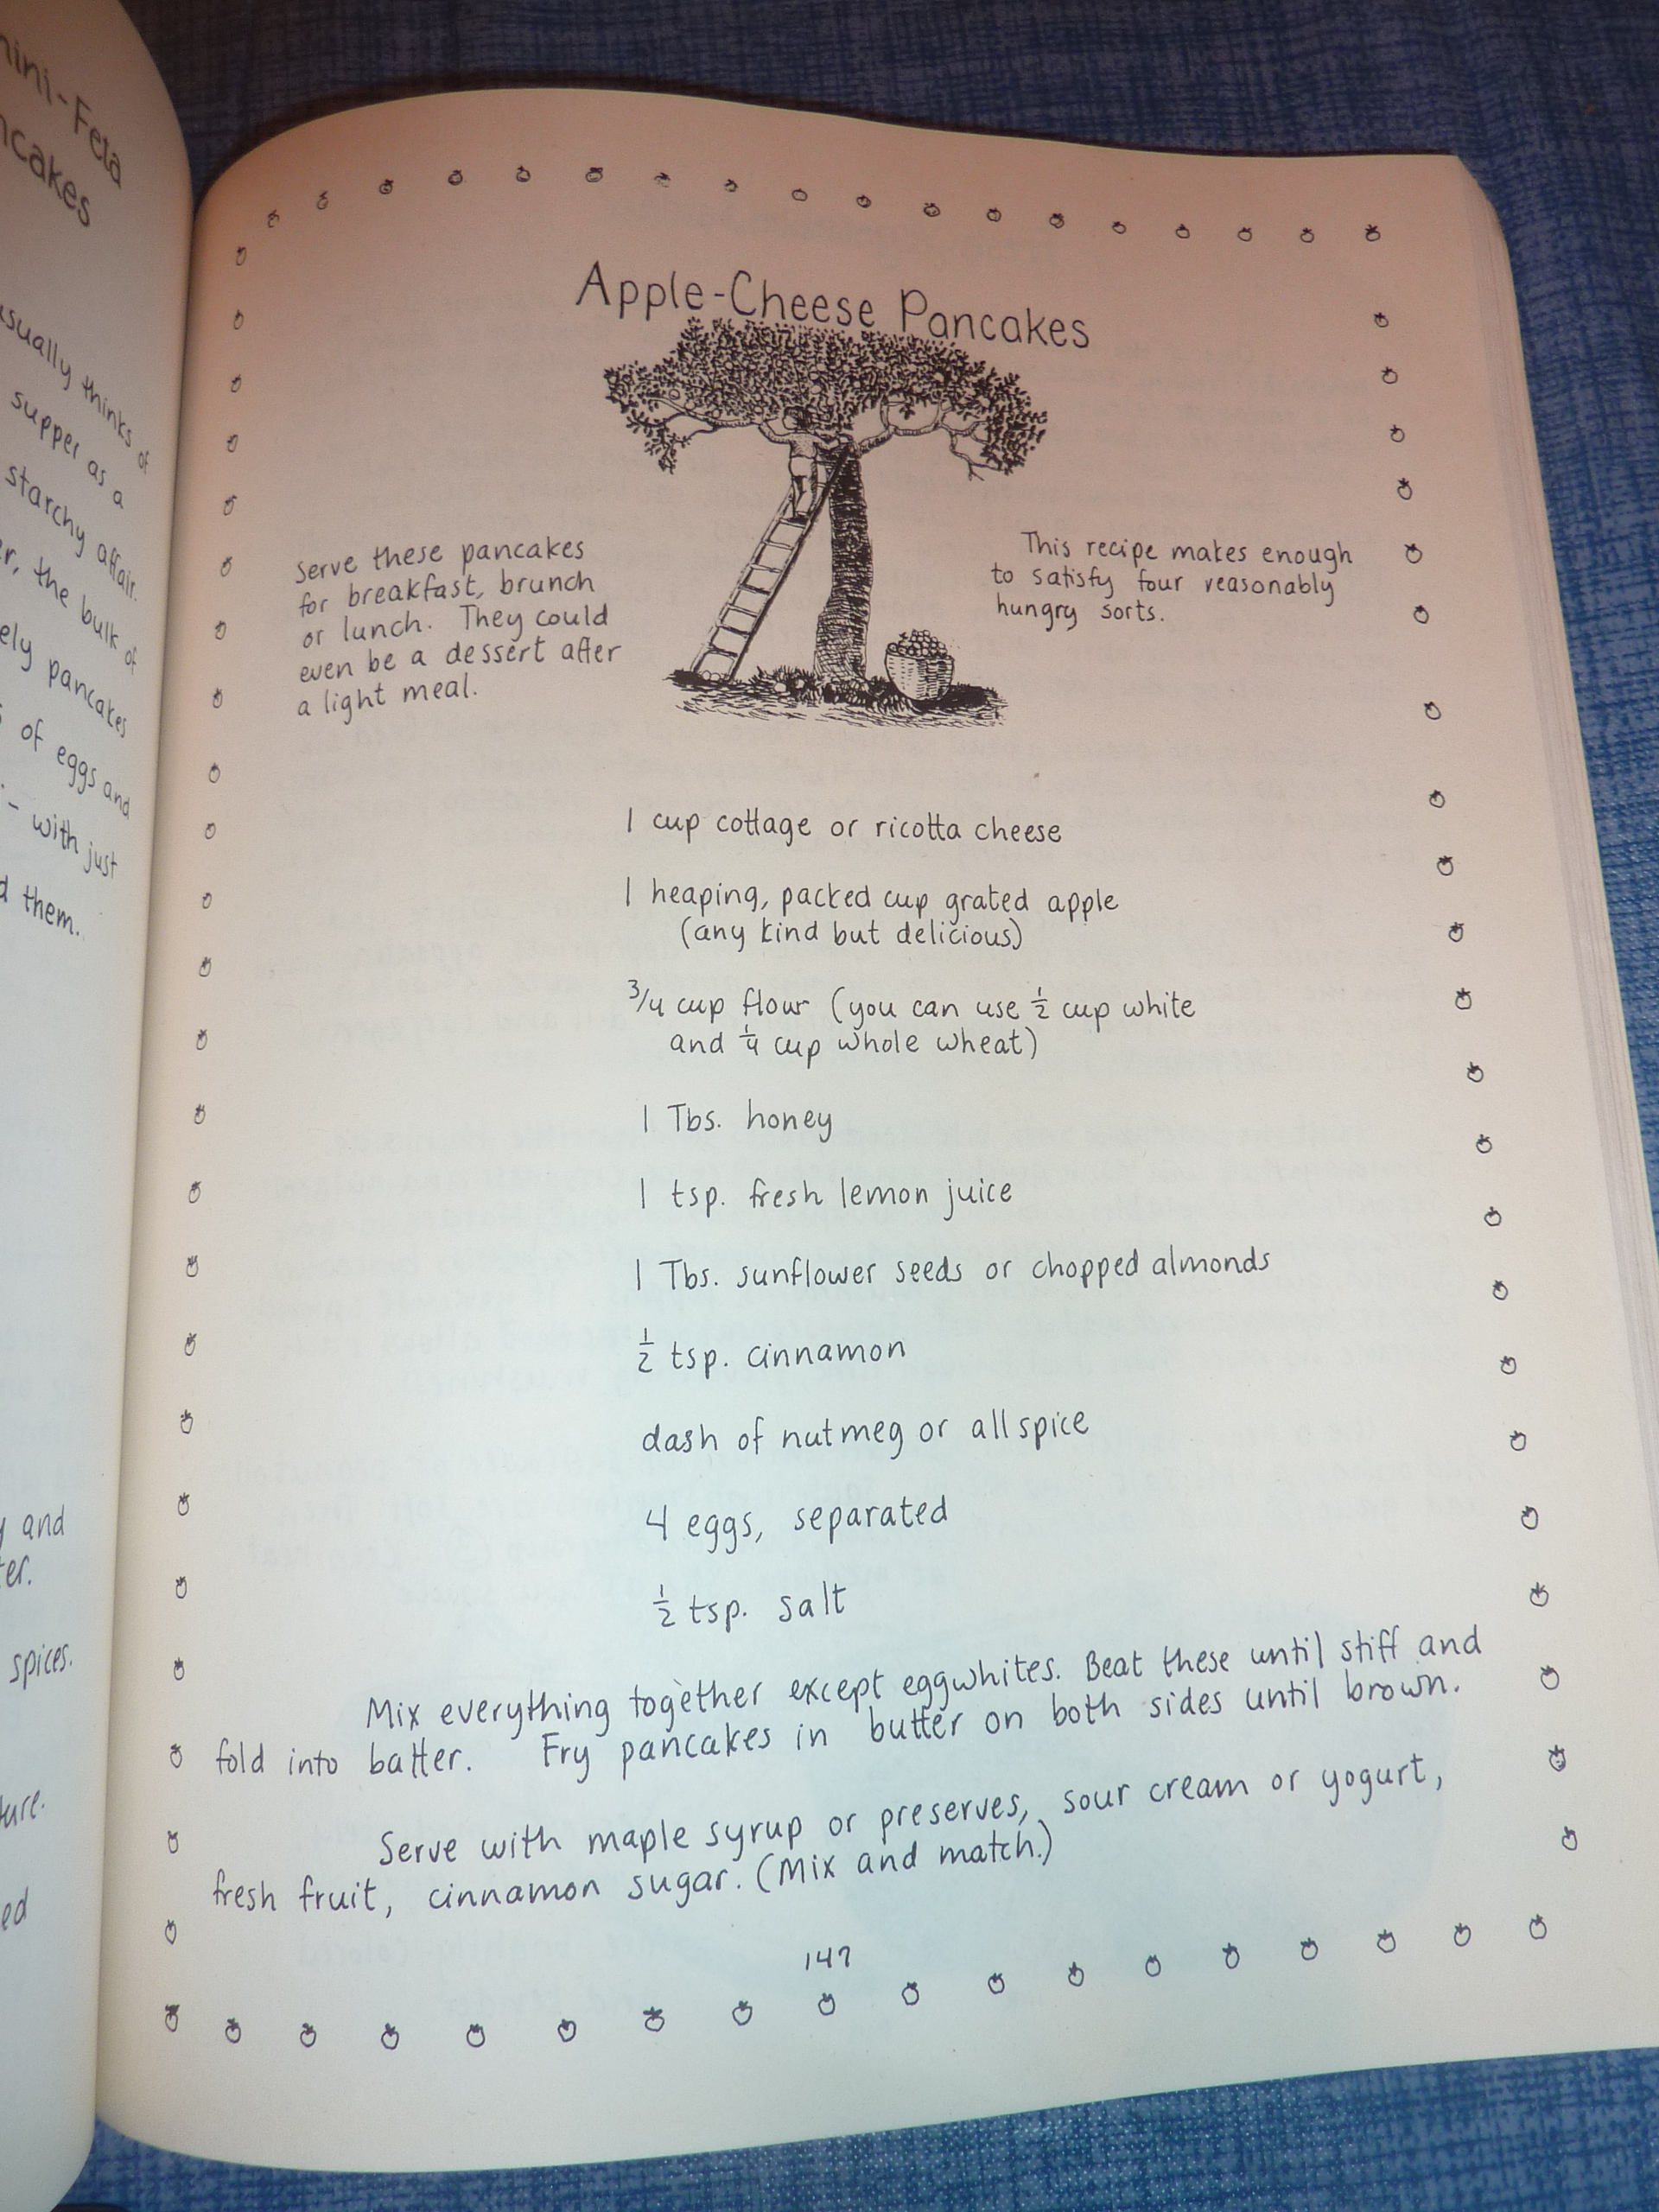 mini-Feta
ncakes
usually thinks of
supper as a
starchy affair.
er, the bulk of
ely pancakes
s of eggs and
- with just
d them.
y and
ter.
spices.
ture.
ed
Apple-Cheese Pancakes
Serve these pancakes
for breakfast, brunch
or lunch. They could
even be a dessert after
a light meal.
This recipe makes enough
to satisfy four reasonably
hungry sorts.
1 cup cottage or ricotta cheese
1 heaping, packed cup grated apple
(any kind but delicious)
3/4 cup flour (you can use 1/2 cup white
and 1/4 cup whole wheat)
1 Tbs. honey
1 tsp. fresh lemon juice
1 Tbs. sunflower seeds or chopped almonds
1/2 tsp. cinnamon
dash of nutmeg or allspice
4 eggs, separated
1/2 tsp. salt
Mix everything together except eggwhites. Beat these until stiff and
fold into batter. Fry pancakes in butter on both sides until brown.
Serve with maple syrup or preserves, sour cream or yogurt,
fresh fruit, cinnamon sugar. (Mix and match.)
147